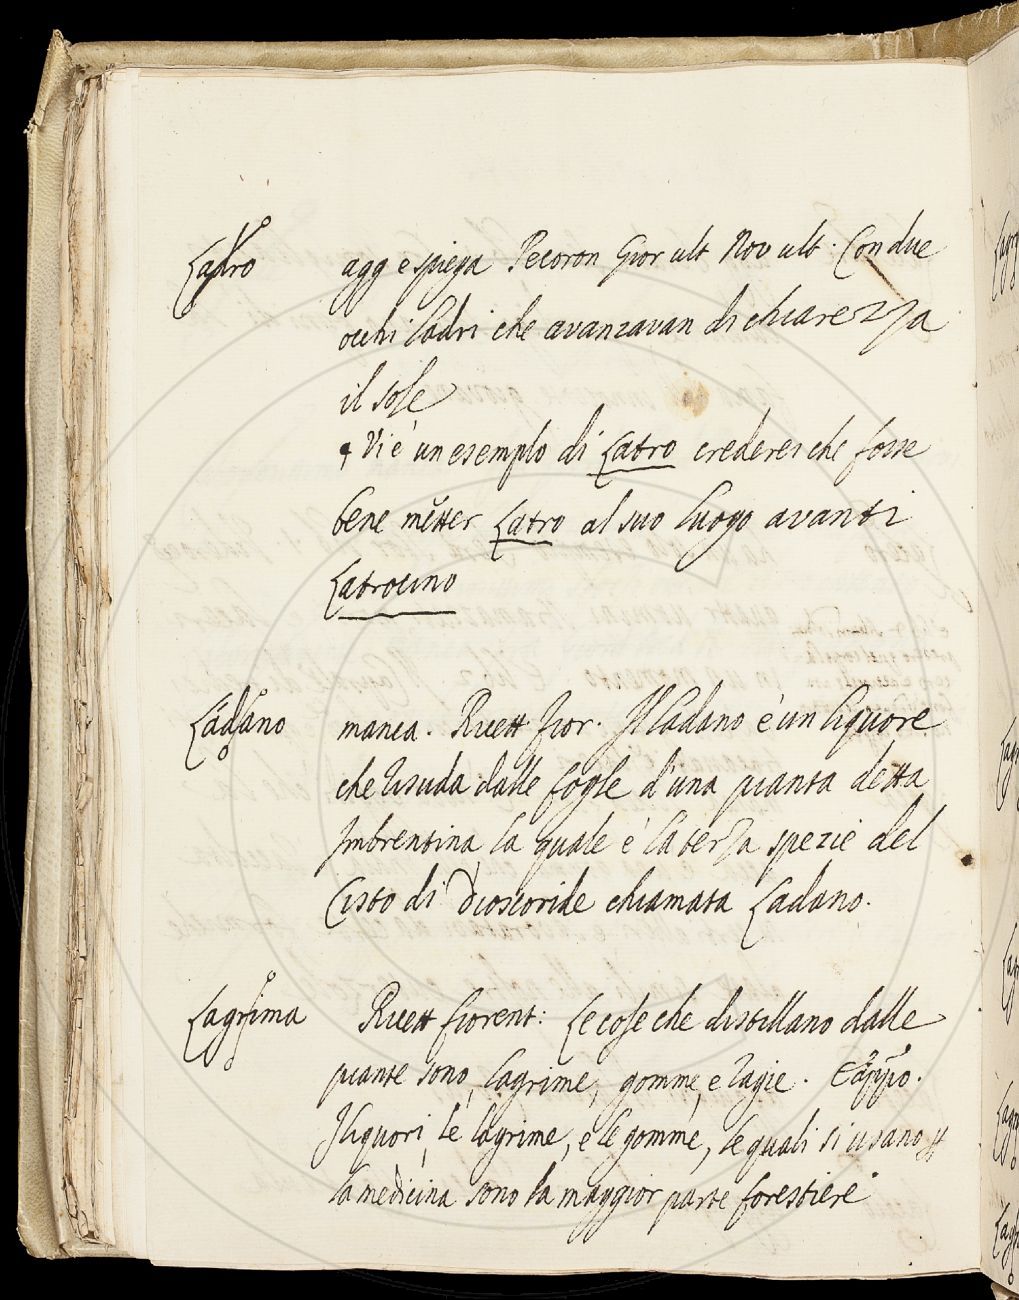 Ladro agg e spiega Pecoron Gior ult Nov ult. Con due
occhi ladri che avanzavan di chiarezza
il sole
Vi è un esemplo di Latro crederei che fosse
bene metter Latro al suo luogo avanti
Latrocino
Ladano manca. Ricett fior. Il ladano è un liquore
che risuda dalle foglie d'una pianta detta
Imbrentina la quale è la terza spezie del
Cisto di Dioscoride chiamata Ladano.
Lagrima Ricett fiorent: Le cose che distillano dalle
piante sono, lagrime, gomme, e ragie.
I liquori, le lagrime, e le gomme, le quali si usano
la medicina sono la maggior parte forestiere